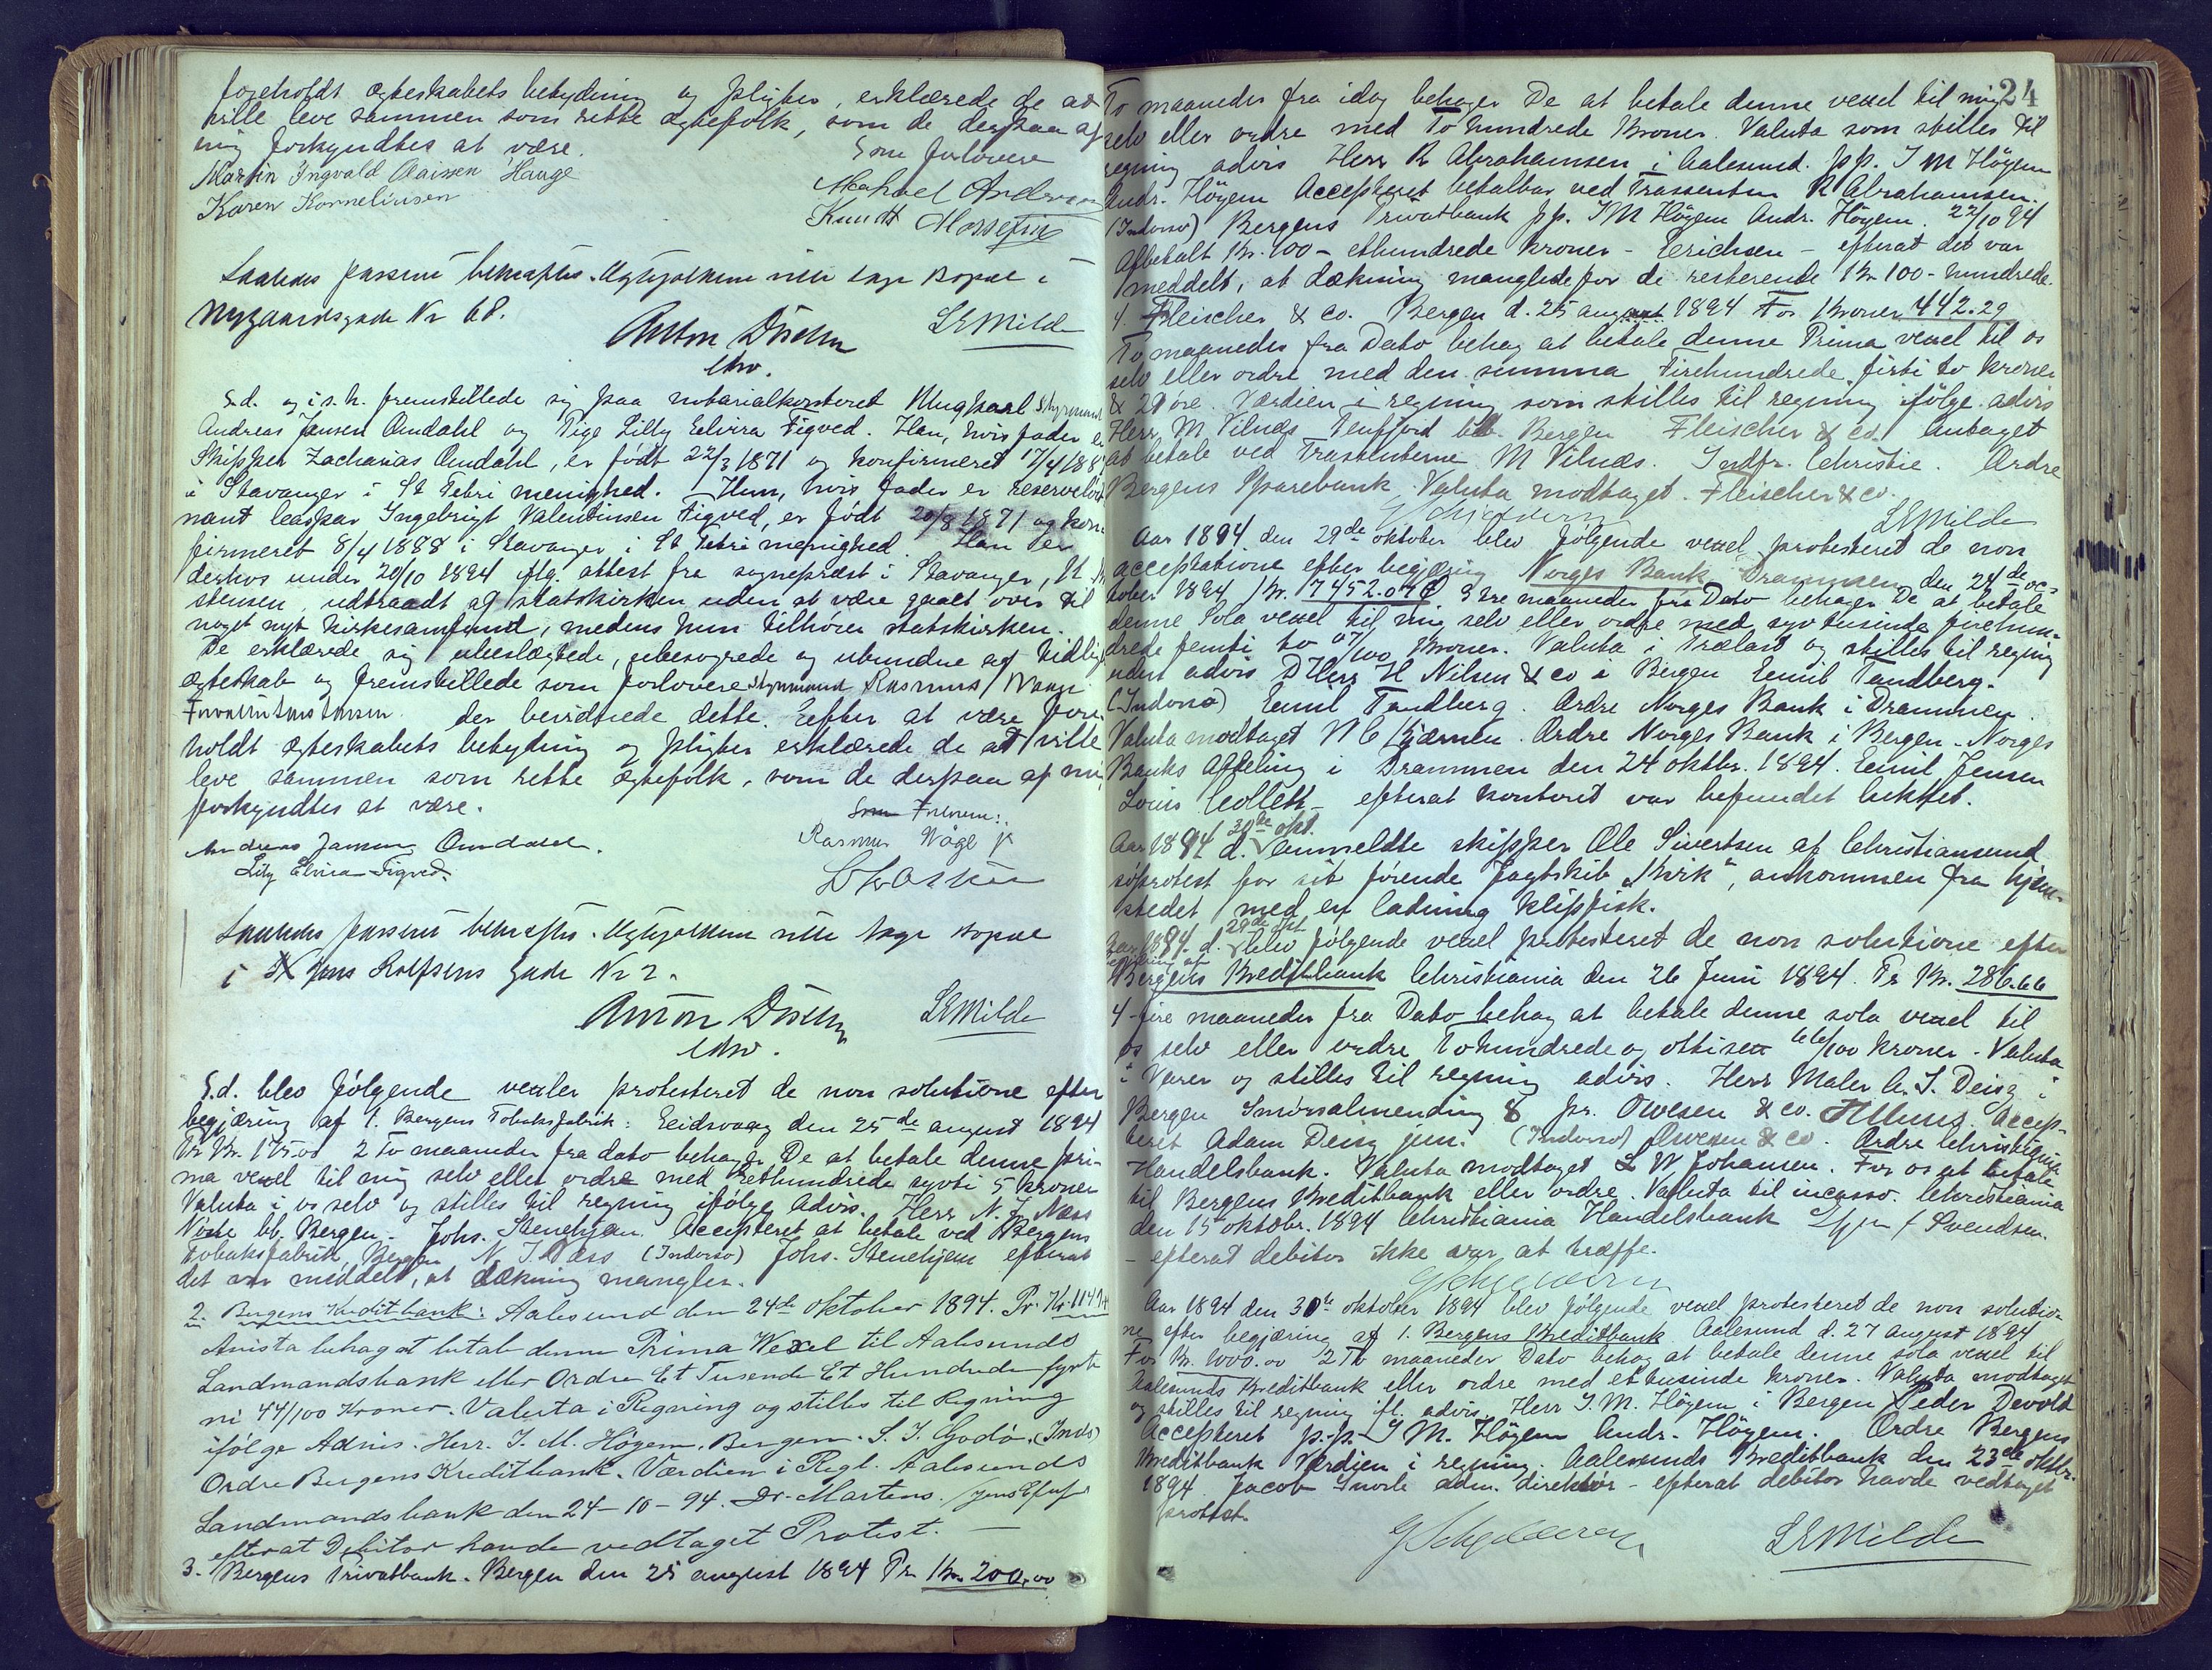 foreholdt ægteskabets betydning og pligter, erklærede de at
ville leve sammen som rette ægtefolk, som de derpaa af
mig forkyndtes at være.
Som forlovere
Martin Ingvald Hauge
Karen Korneliussen
Knutt
Saaledes passeret bekræftes. Ægtefolkene ville tage Bopæl i
Nygaardsgade Nr 68.
Anton
LEMilde
S.d. og i s.h. fremstillede sig paa notarialkontoret Ungkarl Styrmand
Andreas Jansen Omdahl og Pige Lilly Elvira Figved. Han, hvis fader er
Skipper Zacharias Omdahl, er født 22/3 1871 og konfirmeret 17/4 188
i Stavanger i St Petri menighed. Hun, hvis fader er reserveløit
nant Ingebrigt Valentinsen Figved, er født 20/8 1871 og kon-
firmeret 8/4 1888 i Stavanger i St Petri menighed. Han er
derhos under 20/10 1894 iflg. attest fra sognepræst i Stavanger,
stensen, udtraadt af statskirken uden at være gaaet over til
noget nyt kirkesamfund, medens hun tilhører statskirken.
De erklærede sig ubeslægtede, ubesvogrede og ubundne af tidlig
ægteskab og fremstillede som forlovere Styrmand Rasmus Waage
der bevidnede dette. Efter at være fore-
holdt ægteskabets betydning og pligter erklærede de at ville
leve sammen som rette ægtefolk, som de derpaa af mig
forkyndtes at være.
Som Forlovere:
Andreas Jansen Omdahl.
Rasmus Våge jr
Lily Elvira Figved.
Saaledes passeret bekræftes. Ægtefolkene ville tage Bopæl
i Jens Rolfsens Gade Nr 2.
Anton
LEMilde
S.d. blev følgende vexler protesteret de non solutione efter
begjæring af 1. Bergens Tobaksfabrik: Eidsvaag den 25de august 1894
Pr Kr. 175.00 2 To maaneder fra dato behager De at betale denne pri-
ma vexel til mig selv eller ordre med Ethundrede sytti 5 kroner
Valuta i os selv og stilles til regning ifølge Advis. Herr N. J. Næss
Nöste bb. Bergen. Johs. Stenehjem. Accepteret at betale ved Bergens
Tobaksfabrik, Bergen N. J. Næss (Indosso) Johs. Stenehjem efterat
det var meddelt, at dækning mangler.
2. Bergens Kreditbank: Aalesund den 24de Oktober 1894. Pr Kr. 1149.44
Avista behag at betale denne Prima Wexel til Aalesunds
Landmandsbank eller Ordre Et Tusende Et Hundrede fyrti
ni 44/100 Kroner. Valuta i Regning og stilles til Regning
ifølge Advis. Herr. I. M. Högem, Bergen. S. J. Godö. (Inds)
Ordre Bergens Kreditbank. Værdien i Regl. Aalesunds
Landmandsbank den 24-10-94. Dr. Martens.
efterat Debitor havde vedtaget Protest. —
3. Bergens Privatbank. Bergen den 25 august 1894 Pr Kr. 200,00
24
To maaneder fra idag behager De at betale denne vexel til mig
selv eller ordre med Tohundrede Kroner. Valuta som stilles til
regning advis Herr R Abrahamsen i Aalesund. pp. I M Högem
Andr. Högem Accepteret betalbar ved Trassenten R Abrahamsen.
(Indosso) Bergens Privatbank pp. I M Högem Andr. Högem. 27/10 94
Afbetalt Kr. 100- ethundrede kroner - Erichsen - efterat det var
meddelt, at dækning manglede for de resterende Kr 100- hundrede.
4. Fleischer & Co. Bergen d. 25 august 1894 For Kroner 442.29
To maaneder fra Dato behag at betale denne Prima vexel til os
selv eller ordre med den summa Firehundrede firti to kroner
& 29 øre. Værdien i regning som stilles til regning ifølge advis
Herr M Vilnæs bb. Bergen Fleischer & co. Antaget
at betale ved Trassenterne M Vilnæs. Indfr. Christie. Ordre
Bergens Sparebank, Valuta modtaget. Fleischer & co.
LEMilde
Aar 1894 den 29de oktober blev følgende vexel protesteret de non
acceptatione efter begjæring Norges Bank Drammen den 24de oc-
tober 1894 Kr. 7452.07 3 tre maaneder fra Dato behager De at betale
denne Sola vexel til mig selv eller ordre med syv tusinde firehun-
drede femti to 07/100 Kroner. Valuta i Trælast og stilles til regning
uden advis DHerr H Nilsen & co i Bergen Emil Tandberg.
(Indosso) Emil Tandberg. Ordre Norges Bank i Drammen.
Valuta modtaget N C Kjærnen. Ordre Norges Bank i Bergen. Norges
Banks Afdeling i Drammen den 24 oktbr. 1894. Emil Jensen
Louis Collett - efterat kontoret var befundet lukket.
Aar 1894 d. 30te okt. anmeldte skipper Ole Sivertsen af Christiansund
søprotest for sit førende Jagtskib "Kirk", ankommen fra hjem-
stedet med en ladning klipfisk.
Aar 1894. d. 29de okt blev følgende vexel protesteret de non solutione efter
begjæring af
Bergens Kreditbank Christiania den 26 Juni 1894. Pr Kr. 286.66
4-fire maaneder fra Dato behag at betale denne sola vexel til
os selv eller ordre Tohundrede og ottisex 66/100 kroner. Valuta
i Varer og stilles til regning advis. Herr Maler A. J. Deisz i
Bergen Smörsalmending 8 pr. Owesen & co. Accep-
teret Adam Deisz jun. (Indosso) Owesen & co. Ordre Christiania
Handelsbank. Valuta modtaget L W Johansen. For os at betale
til Bergens Kreditbank eller ordre. Valuta til incasso. Christiania
den 15 oktobr. 1894 Christiania Handelsbank Svendsen.
- efterat debitor ikke var at træffe.
Aar 1894 den 30te oktober 1894 blev følgende vexel protesteret de non solutio-
ne efter begjæring af 1. Bergens Kreditbank Aalesund d. 27 August 1894
For Kr. 1000.00 2 To maaneder Dato behag at betale denne sola vexel til
Aalesunds Kreditbank eller ordre med et tusinde kroner. Valuta modtaget
og stilles til regning ifl. advis. Herr I. M. Högem i Bergen Peder Devold
Accepteret p.p. I M. Högem Andr. Högem. Ordre Bergens
Kreditbank Værdien i regning. Aalesunds Kreditbank den 23de oktbr.
1894 Jacob adm. direktör - efterat debitor havde vedtaget
protest.
LEMilde